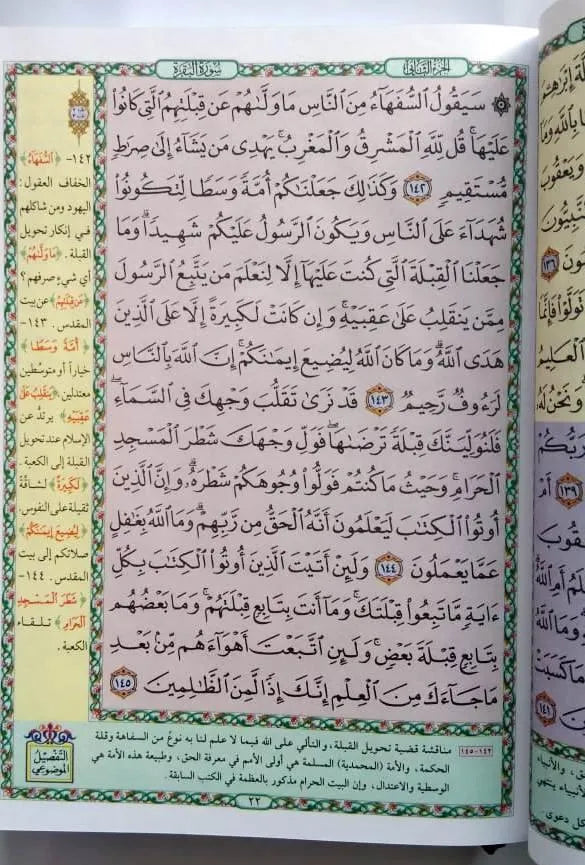 سورة البقرة
الجزء الثاني
۞ سَيَقُولُ ٱلسُّفَهَآءُ مِنَ ٱلنَّاسِ مَا وَلَّىٰهُمْ عَن قِبْلَتِهِمُ ٱلَّتِى كَانُوا۟
عَلَيْهَا ۚ قُل لِّلَّهِ ٱلْمَشْرِقُ وَٱلْمَغْرِبُ ۚ يَهْدِى مَن يَشَآءُ إِلَىٰ صِرَٰطٍ
مُّسْتَقِيمٍ ١٤٢ وَكَذَٰلِكَ جَعَلْنَٰكُمْ أُمَّةً وَسَطًا لِّتَكُونُوا۟
شُهَدَآءَ عَلَى ٱلنَّاسِ وَيَكُونَ ٱلرَّسُولُ عَلَيْكُمْ شَهِيدًا ۗ وَمَا
جَعَلْنَا ٱلْقِبْلَةَ ٱلَّتِى كُنتَ عَلَيْهَآ إِلَّا لِنَعْلَمَ مَن يَتَّبِعُ ٱلرَّسُولَ
مِمَّن يَنقَلِبُ عَلَىٰ عَقِبَيْهِ ۚ وَإِن كَانَتْ لَكَبِيرَةً إِلَّا عَلَى ٱلَّذِينَ
هَدَى ٱللَّهُ ۗ وَمَا كَانَ ٱللَّهُ لِيُضِيعَ إِيمَٰنَكُمْ ۚ إِنَّ ٱللَّهَ بِٱلنَّاسِ
لَرَءُوفٌ رَّحِيمٌ ١٤٣ قَدْ نَرَىٰ تَقَلُّبَ وَجْهِكَ فِى ٱلسَّمَآءِ ۖ
فَلَنُوَلِّيَنَّكَ قِبْلَةً تَرْضَىٰهَا ۚ فَوَلِّ وَجْهَكَ شَطْرَ ٱلْمَسْجِدِ
ٱلْحَرَامِ ۚ وَحَيْثُ مَا كُنتُمْ فَوَلُّوا۟ وُجُوهَكُمْ شَطْرَهُۥ ۗ وَإِنَّ ٱلَّذِينَ
أُوتُوا۟ ٱلْكِتَٰبَ لَيَعْلَمُونَ أَنَّهُ ٱلْحَقُّ مِن رَّبِّهِمْ ۗ وَمَا ٱللَّهُ بِغَٰفِلٍ
عَمَّا يَعْمَلُونَ ١٤٤ وَلَئِنْ أَتَيْتَ ٱلَّذِينَ أُوتُوا۟ ٱلْكِتَٰبَ بِكُلِّ
ءَايَةٍ مَّا تَبِعُوا۟ قِبْلَتَكَ ۚ وَمَآ أَنتَ بِتَابِعٍ قِبْلَتَهُمْ ۚ وَمَا بَعْضُهُم
بِتَابِعٍ قِبْلَةَ بَعْضٍ ۚ وَلَئِنِ ٱتَّبَعْتَ أَهْوَآءَهُم مِّنۢ بَعْدِ
مَا جَآءَكَ مِنَ ٱلْعِلْمِ ۙ إِنَّكَ إِذًا لَّمِنَ ٱلظَّٰلِمِينَ ١٤٥
١٤٢- ﴿ٱلسُّفَهَآءُ﴾
الخفاف العقول:
اليهود ومن شاكلهم
في إنكار تحويل
القبلة. ﴿مَا وَلَّىٰهُمْ﴾
أي شيء صرفهم؟
﴿عَن قِبْلَتِهِمُ﴾ عن بيت
المقدس. ١٤٣-
﴿أُمَّةً وَسَطًا﴾
خياراً أو متوسّطين
معتدلين ﴿يَنقَلِبُ عَلَىٰ
عَقِبَيْهِ﴾ يرتدّ عن
الإسلام عند تحويل
القبلة إلى الكعبة.
﴿لَكَبِيرَةً﴾ لشاقّة
ثقيلة على النفوس.
﴿لِيُضِيعَ إِيمَٰنَكُمْ﴾
صلاتكم إلى بيت
المقدس. ١٤٤-
﴿شَطْرَ ٱلْمَسْجِدِ
ٱلْحَرَامِ﴾ تلقاء
الكعبة.
التفصيل
الموضوعي
١٤٢-١٤٥ مناقشة قضية تحويل القبلة، والتألي على الله فيما لا علم لنا به نوع من السفاهة وقلة
الحكمة، والأمة (المحمدية) المسلمة هي أولى الأمم في معرفة الحق، وطبيعة هذه الأمة هي
الوسطية والاعتدال، وإن البيت الحرام مذكور بالعظمة في الكتب السابقة.
٢٢